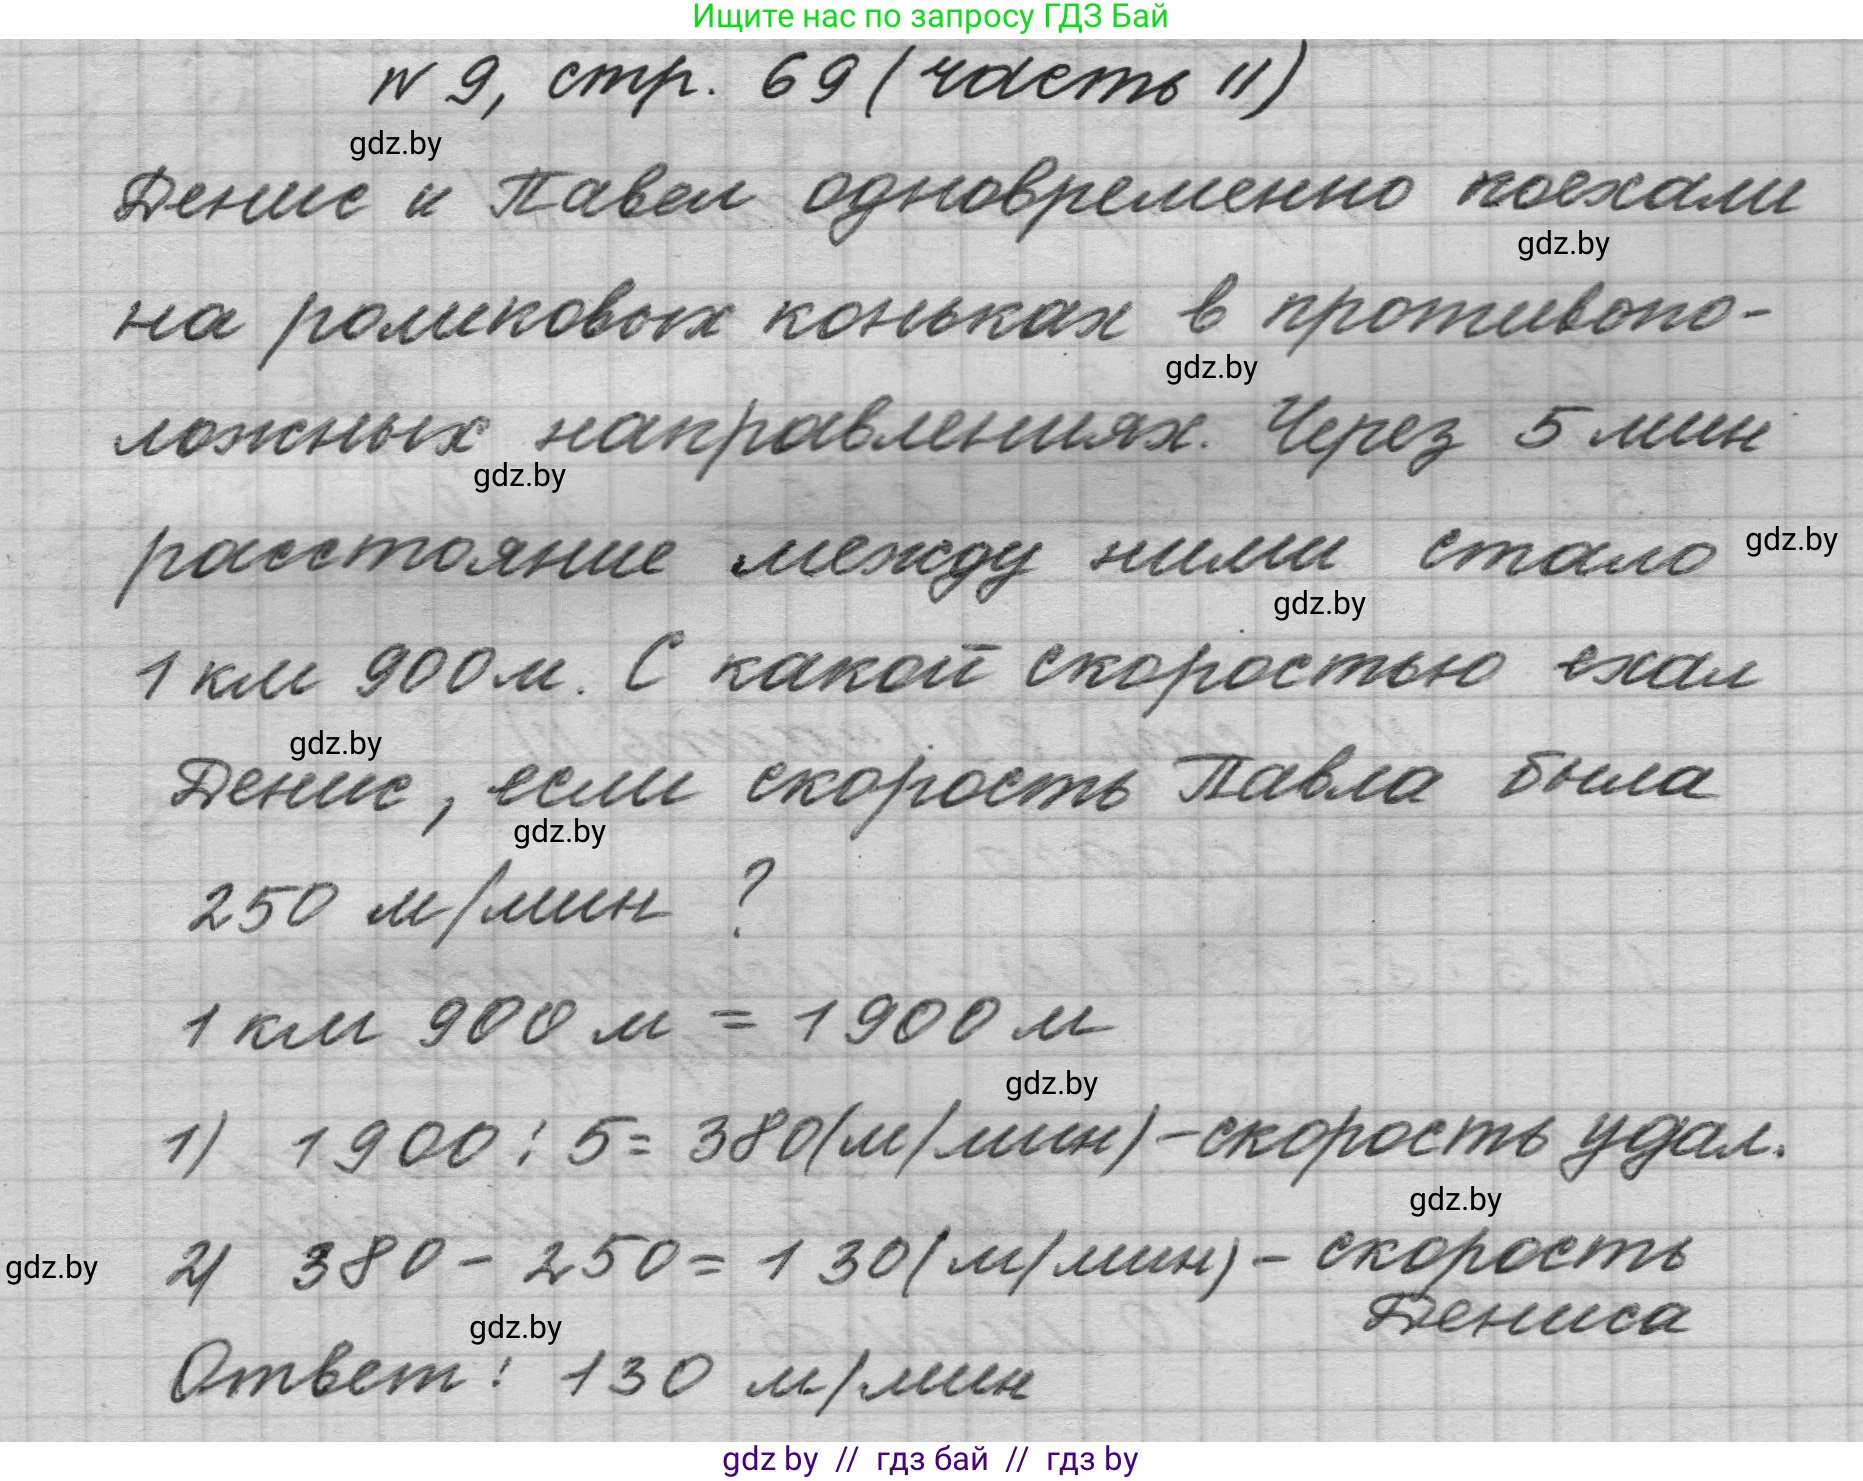 Ищите нас по запросу ГДЗ Бай
N 9, стр. 69 (часть II)
gdz.by
Денис и Павел одновременно поехали
gdz.by
на роликовых коньках в противопо-
gdz.by
ложных направлениях. Через 5 мин
gdz.by
расстояние между ними стало
gdz.by
gdz.by
1 км 900 м. С какой скоростью ехал
gdz.by
Денис, если скорость Павла была
gdz.by
250 м/мин ?
1 км 900 м = 1900 м
gdz.by
1) 1900 : 5 = 380 (м/мин) - скорость удал.
gdz.by
2) 380 - 250 = 130 (м/мин) - скорость
gdz.by
Дениса
gdz.by
Ответ: 130 м/мин
gdz by // гдз бай // гдз by